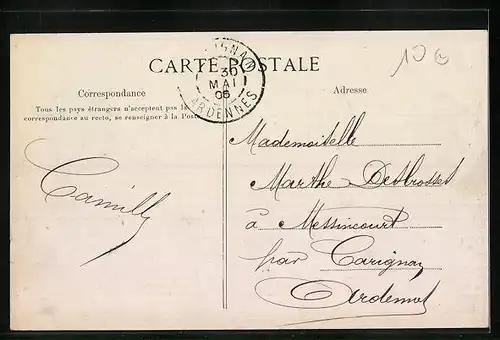 CARTE POSTALE
Correspondance
Tous les pays étrangers n'acceptent pas la
correspondance au recto, se renseigner à la Poste
CARIGNAN
30
MAI
06
ARDENNES
Camilly
Adresse
Mademoiselle
Marthe Desbrosset
à Messincourt
par Carignan
Ardennes